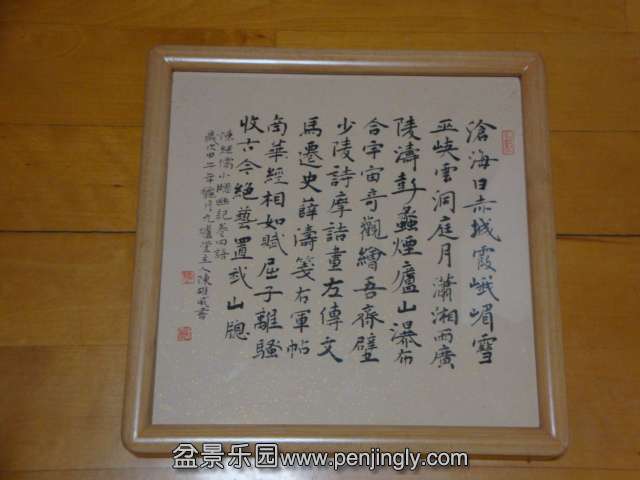 滄海日赤城霞峨嵋雪
巫峽雲洞庭月瀟湘雨廣
陵濤彭蠡煙廬山瀑布
合宇宙奇觀繪吾齋壁
少陵詩摩詰畫左傳文
馬遷史薛濤箋右軍帖
南華經相如賦屈子離騷
收古今絕藝置我山牕
陳繼儒小牕幽記卷四語
盆景乐园www.penjingly.com